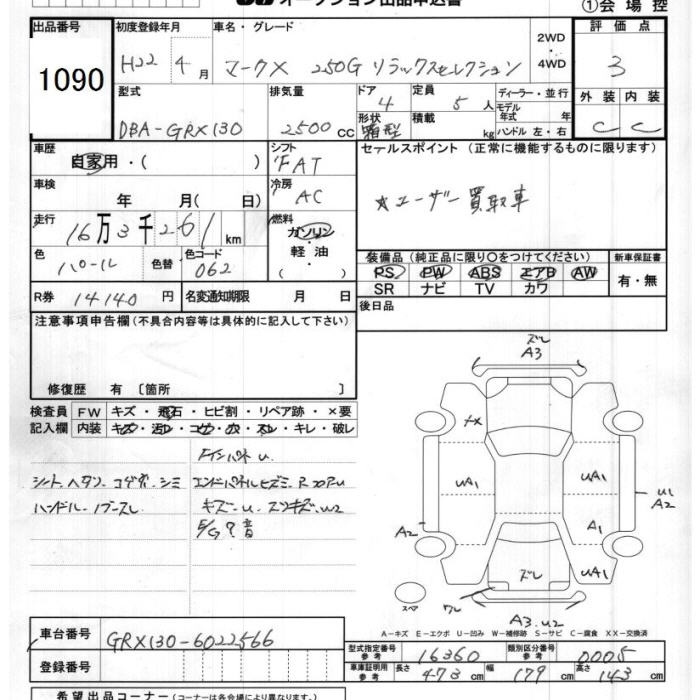 オークション出品申込書
①会場控
出品番号 初度登録年月 車名・グレード 2WD・4WD 評価点
1090 H22 4月 マークX 250G リラックスセレクション 3
型式 排気量 ドア 4 定員 5人 ディーラー・並行 外装 内装
DBA-GRX130 2500cc 形状 箱型 積載 kg モデル年式 年 C C
ハンドル 左・右
車歴 自家用・( ) シフト FAT セールスポイント (正常に機能するものに限ります)
車検 年 月( 日) 冷房 AC ★ユーザー買取車
走行 16万3千261km 燃料 ガソリン・軽油・( )
色 パール 色替 色コード 062 装備品 (純正品に限り○をつけてください) 新車保証書
PS PW ABS エアB AW 有・無
SR ナビ TV カワ
R券 14140円 名変通知期限 月 日 後日品
注意事項申告欄 (不具合内容等は具体的に記入して下さい)
修復歴 有 [箇所 ]
検査員 FW キズ・飛石・ヒビ割・リペア跡・×要
記入欄 内装 キズ・汚レ・コゲ・穴・スレ・キレ・破レ
シート ヘタリ コゲ穴 シミ
ハンドル
キズ
E/G ? 音
ズレ
A3
UA1 UA1 U1
A2
A2 A1
ズレ UA1
スペア ワレ A3.U2
A―キズ E―エクボ U―凹み W―補修跡 S―サビ C―腐食 XX―交換済
車台番号 GRX130-6022566
登録番号
型式指定番号 参考 16360 類別区分番号 参考 0005
車庫証明用 参考 長さ 473cm 幅 179cm 高さ 143cm
希望出品コーナー (コーナーは各会場により異なります)